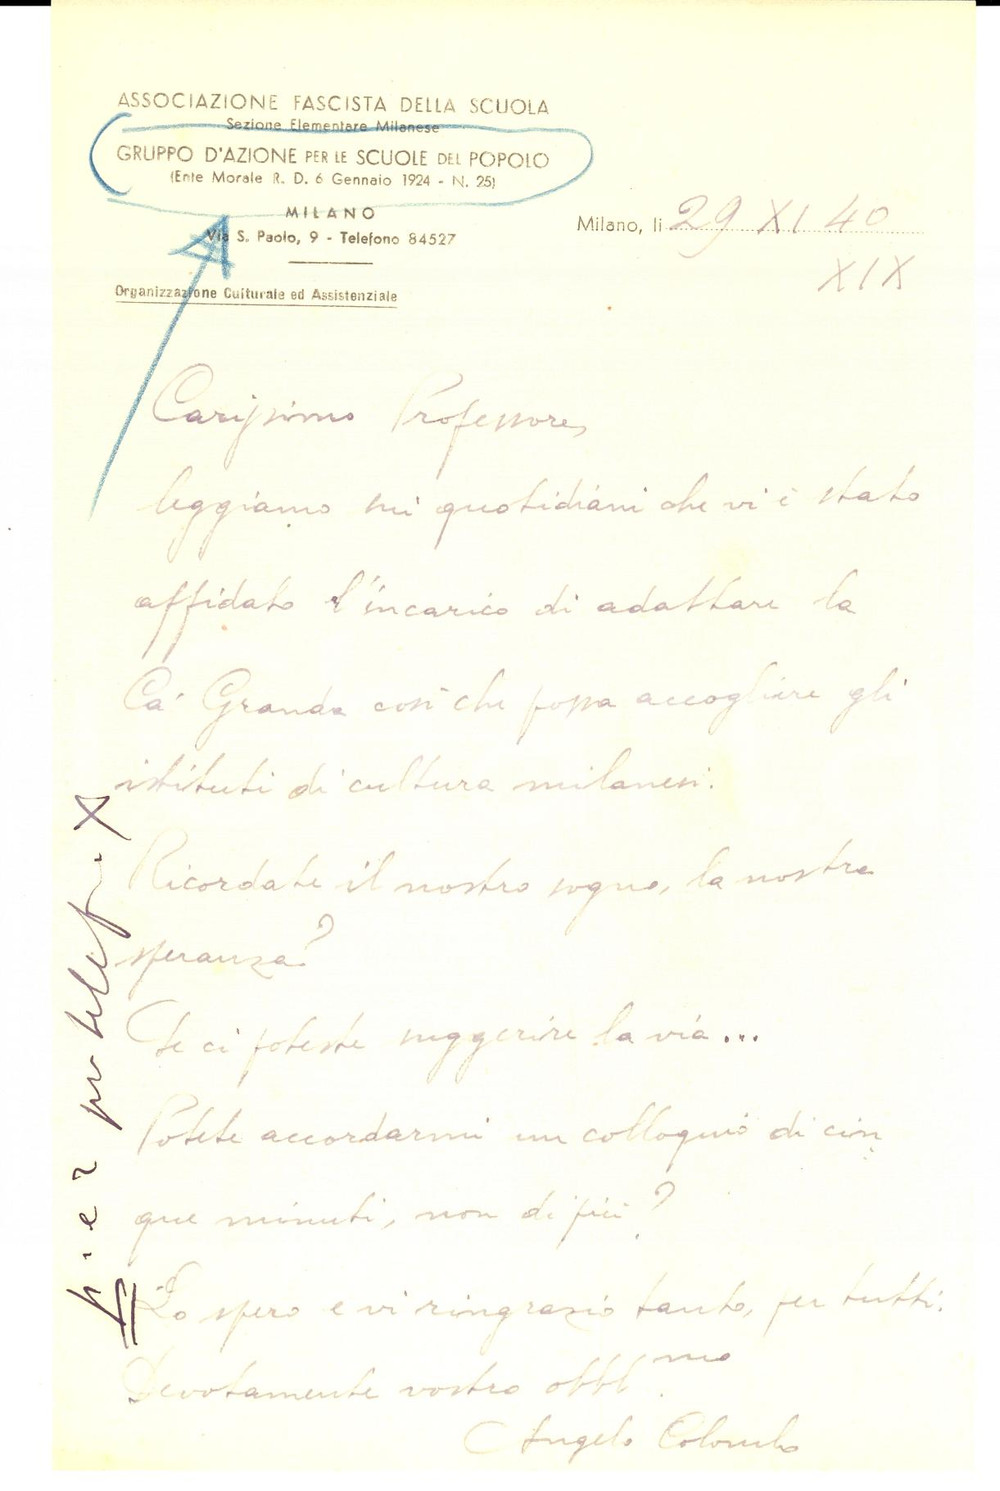 ASSOCIAZIONE FASCISTA DELLA SCUOLA
Sezione Elementare Milanese
GRUPPO D'AZIONE PER LE SCUOLE DEL POPOLO
(Ente Morale R. D. 6 Gennaio 1924 - N. 25)
MILANO
Via S. Paolo, 9 - Telefono 84527
Organizzazione Culturale ed Assistenziale
Milano, li 29 XI 40
XIX
Carissimo Professore,
leggiamo sui quotidiani che vi è stato
affidato l'incarico di adattare la
Ca' Granda così che possa accogliere gli
istituti di cultura milanesi.
Ricordate il nostro sogno, la nostra
speranza?
Se ci poteste suggerire la via...
Potete accordarmi un colloquio di cin
que minuti, non di più?
Lo spero e vi ringrazio tanto, per tutti.
Devotamente vostro obbl.mo
Angelo Colombo